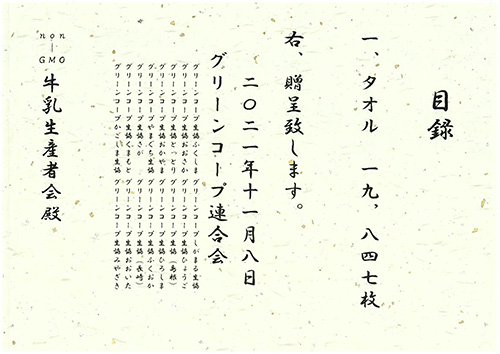 目録
一、タオル 一九，八四七枚
右、贈呈致します。
二〇二一年十一月八日
グリーンコープ連合会
グリーンコープ生協ふくしま グリーンコープしがまる生協
グリーンコープ生協おおさか グリーンコープ生協ひょうご
グリーンコープ生協とっとり グリーンコープ生協（島根）
グリーンコープ生協おかやま グリーンコープ生協ひろしま
グリーンコープやまぐち生協 グリーンコープ生協ふくおか
グリーンコープ生協さが グリーンコープ生協（長崎）
グリーンコープ生協くまもと グリーンコープ生協おおいた
グリーンコープかごしま生協 グリーンコープ生協みやざき
non-GMO 牛乳生産者会殿